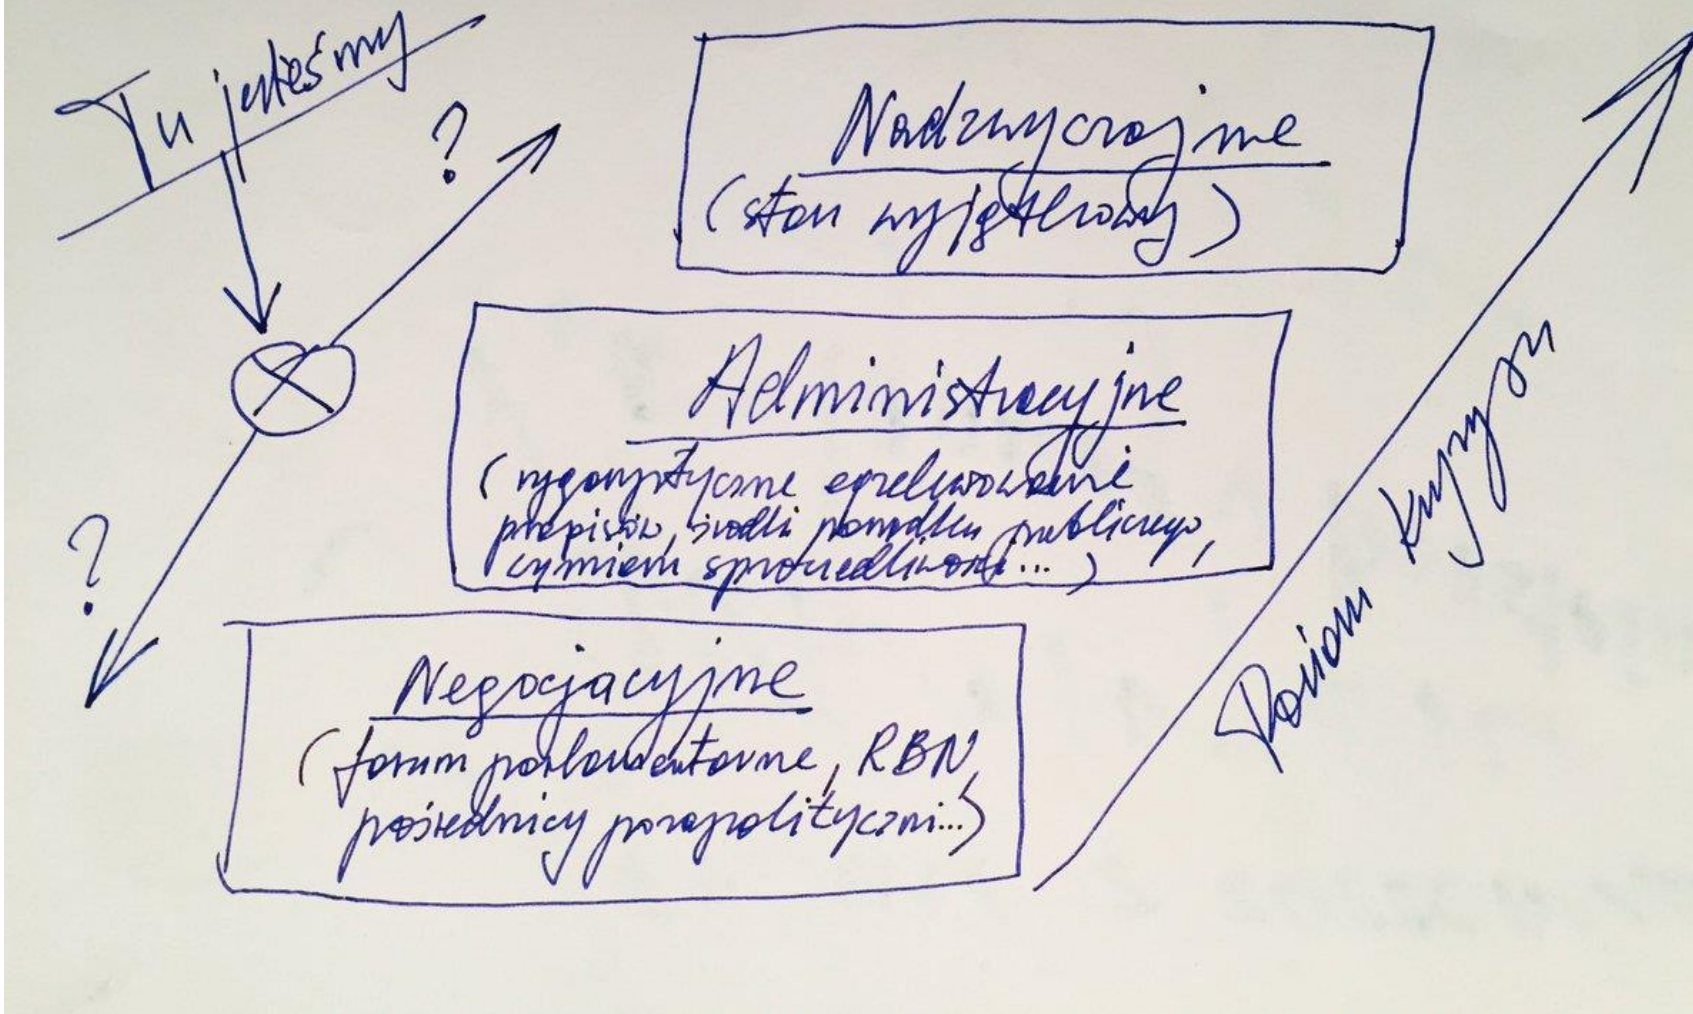 Tu jesteśmy
?
Nadzwyczajne
(stan wyjątkowy)
Administracyjne
(rygorystyczne egzekwowanie
przepisów, środki porządku publicznego,
wymiaru sprawiedliwości...)
?
Negocjacyjne
(forum parlamentarne, RBN,
pośrednicy parapolityczni...)
Poziom kryzysu